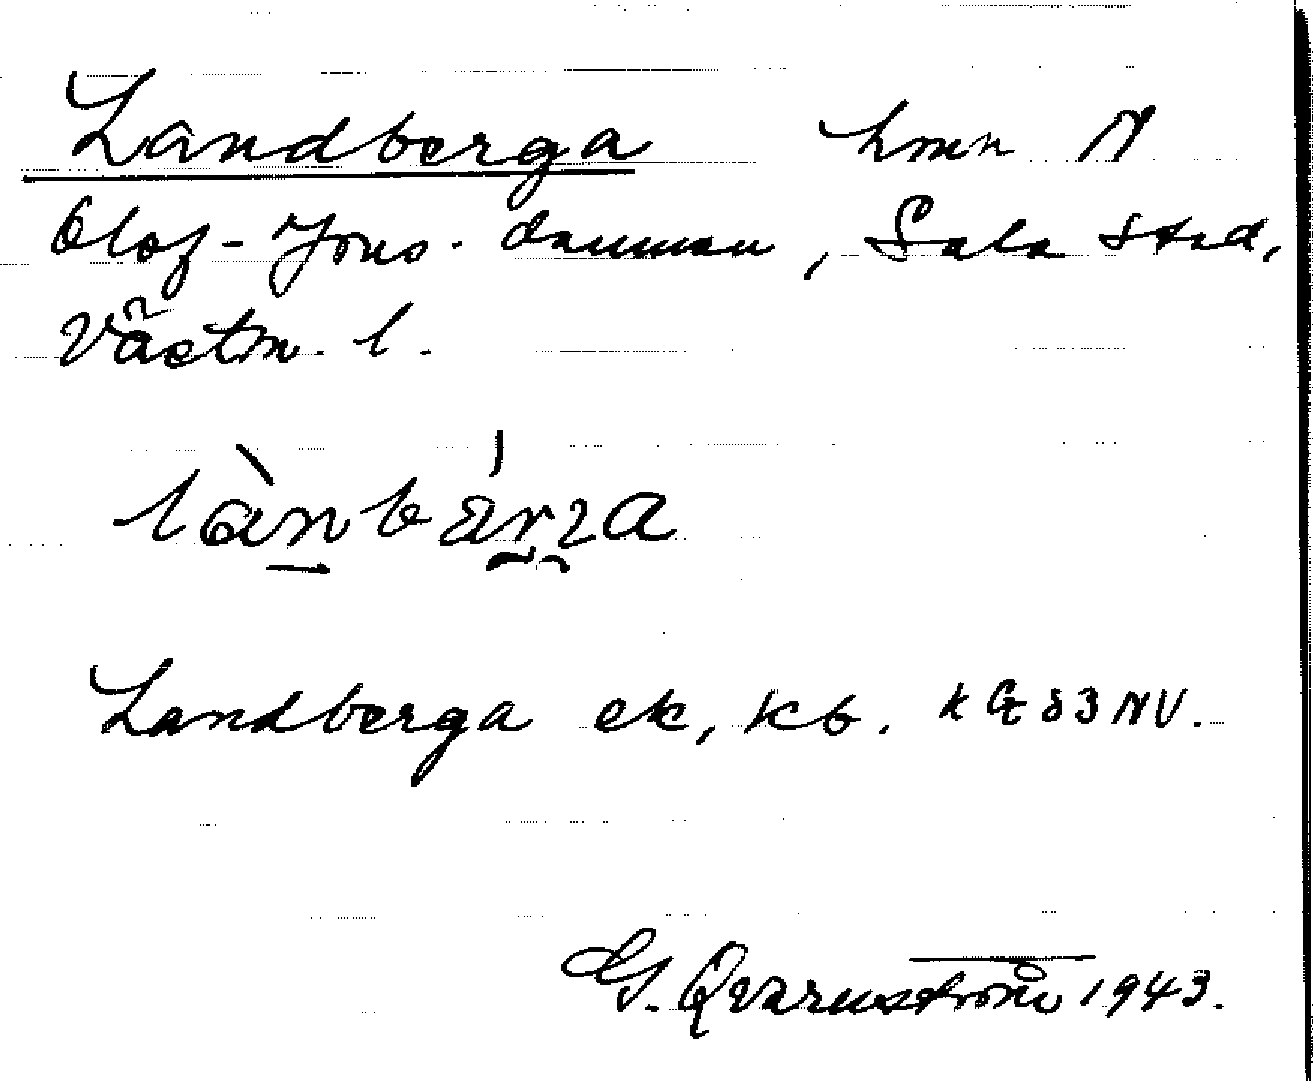 Landberga hmn N
Olof-Jons-dammen, Sala stad,
Västm. l.
lànbá̈rga
Landberga ek, kb. k G 83 NV.
G. Qvarnström 1943.